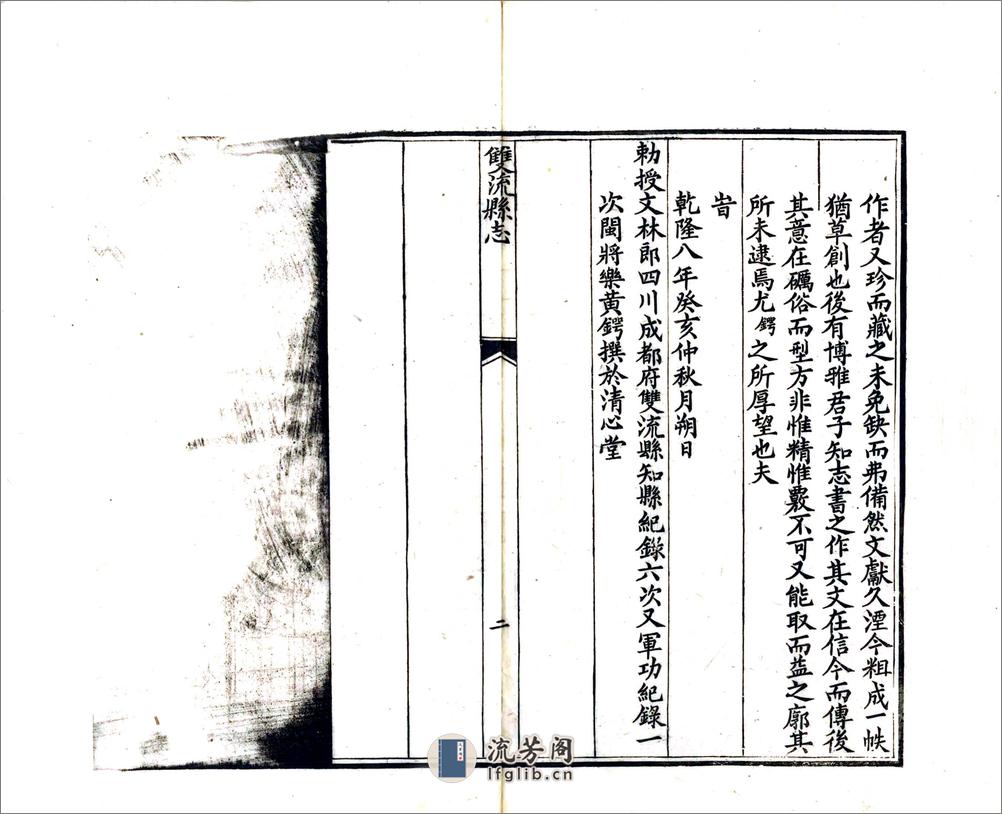 作者又珍而藏之未免缺而弗備然文獻久湮今粗成一帙
猶草創也後有博雅君子知志書之作其文在信今而傳後
其意在礪俗而型方非惟精惟覈不可又能取而益之廓其
所未逮焉尤鍔之所厚望也夫
旹
乾隆八年癸亥仲秋月朔日
勅授文林郎四川成都府雙流縣知縣紀錄六次又軍功紀錄一
次閩將樂黃鍔撰於清心堂
雙流縣志
二
流芳阁
lfglib.cn